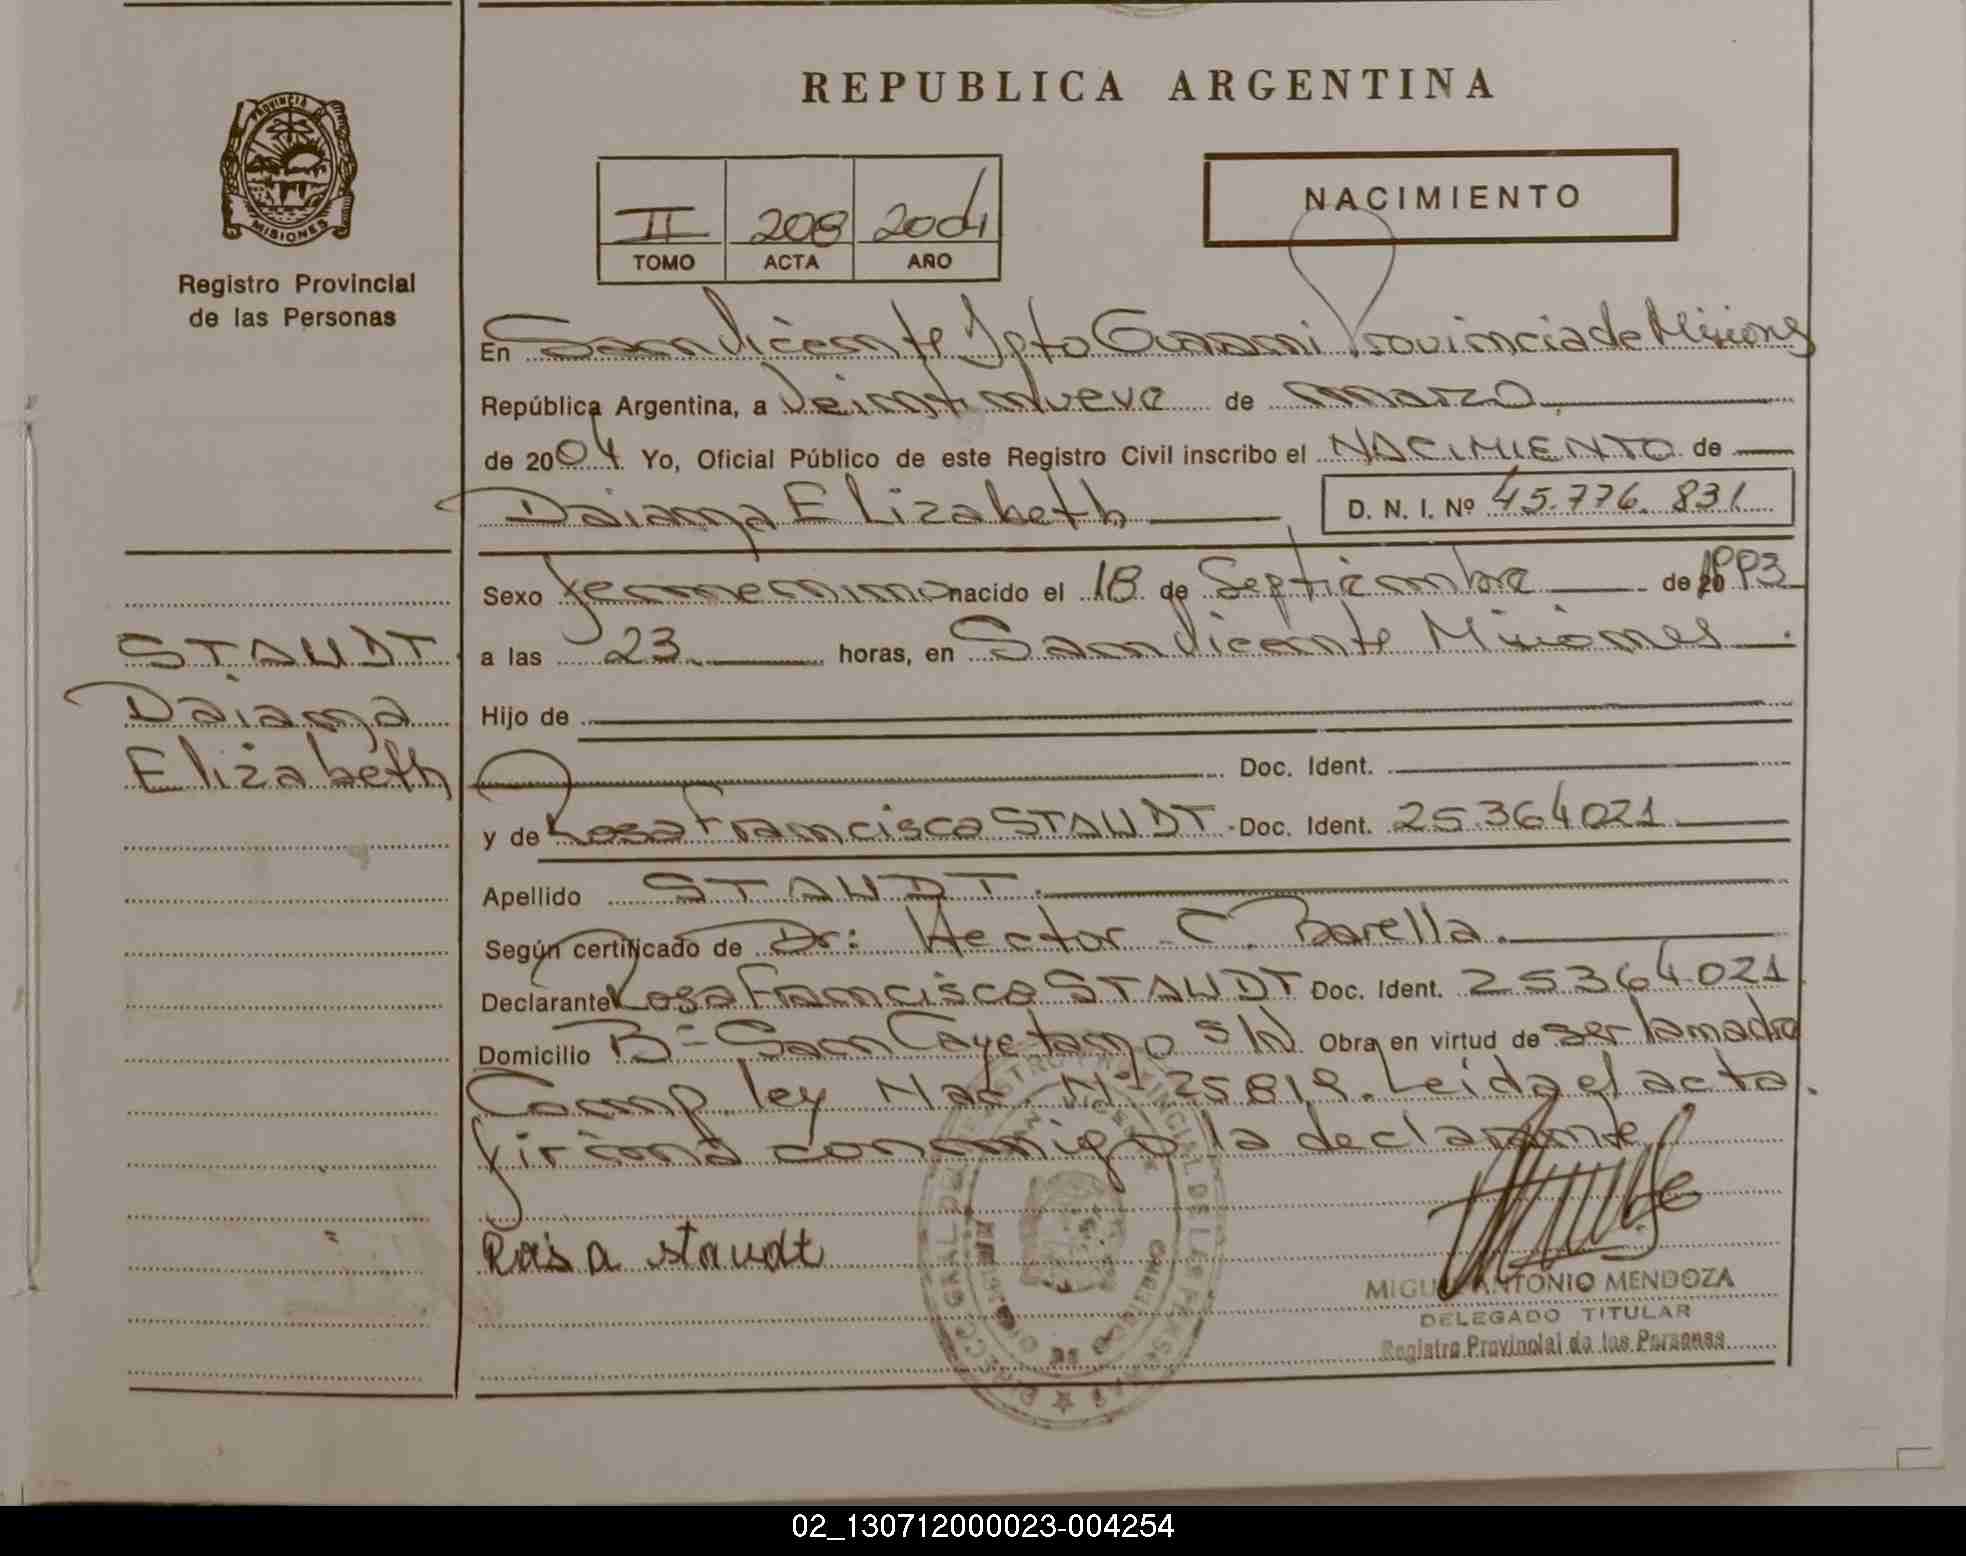 REPUBLICA ARGENTINA
PROVINCIA DE
MISIONES
Registro Provincial
de las Personas
II 208 2004
TOMO ACTA AÑO
NACIMIENTO
En San Vicente Dpto Guarani Provincia de Misiones
República Argentina, a Veintinueve de marzo
de 2004 Yo, Oficial Público de este Registro Civil inscribo el NACIMIENTO de
Daiana Elizabeth D. N. I. Nº 45.776.831
Sexo femenino nacido el 18 de Septiembre de 1993
a las 23 horas, en San Vicente Misiones
STAUDT
Daiana
Elizabeth
Hijo de
Doc. Ident.
y de Rosa Francisca STAUDT Doc. Ident. 25364021
Apellido STAUDT.
Según certificado de Dr: Hector C Barella.
Declarante Rosa Francisca STAUDT Doc. Ident. 25364021
Domicilio Bº San Cayetano S/N Obra en virtud de ser la madre
Comp. ley Nac. Nº 25819. Leida el acta
firma conmigo la declarante
Rosa staudt
MIGUEL ANTONIO MENDOZA
DELEGADO TITULAR
Registro Provincial de las Personas
02_130712000023-004254